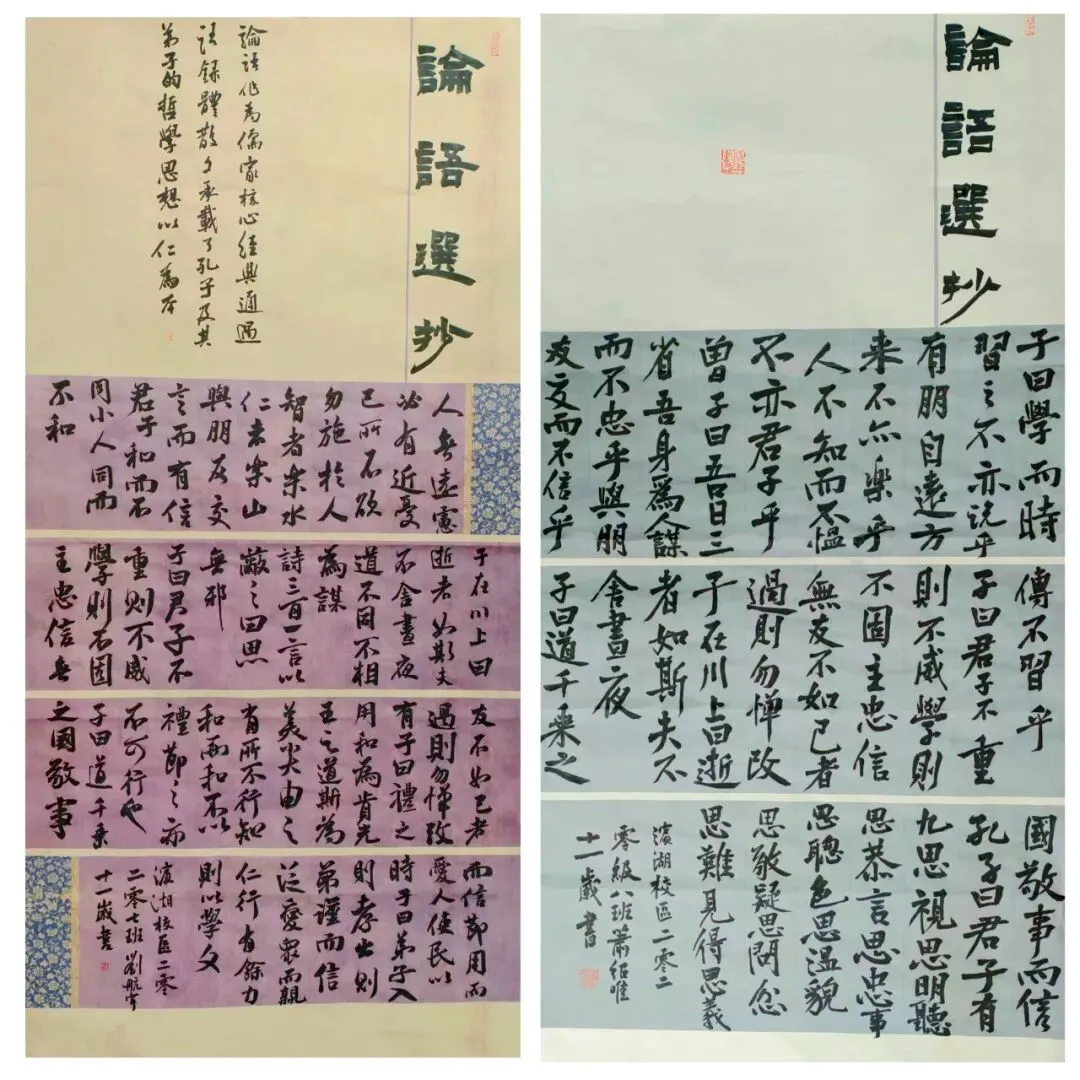 論語選抄
論語作為儒家核心經典通過
語錄體散文承載了孔子及其
弟子的哲學思想以仁為本
人無遠慮
必有近憂
己所不欲
勿施於人
智者樂水
仁者樂山
與朋友交
言而有信
君子和而不
同小人同而
不和
子在川上曰
逝者如斯夫
不舍晝夜
道不同不相
為謀
詩三百一言以
蔽之曰思
無邪
子曰君子不
重則不威
學則不固
主忠信無
友不如己者
過則勿憚改
有子曰禮之
用和為貴先
王之道斯為
美小大由之
有所不行知
和而和不以
禮節之亦
不可行也
子曰道千乘
之國敬事
而信節用而
愛人使民以
時子曰弟子入
則孝出則
弟謹而信
泛愛眾而親
仁行有餘力
則以學文
濱湖校區二零
二零七班劉航宇
十一歲書
論語選抄
子曰學而時
習之不亦説乎
有朋自遠方
來不亦樂乎
人不知而不慍
不亦君子乎
曾子曰吾日三
省吾身爲人謀
而不忠乎與朋
友交而不信乎
傳不習乎
子曰君子不重
則不威學則
不固主忠信
無友不如己者
過則勿憚改
子在川上曰逝
者如斯夫不
舍晝夜
子曰道千乘之
國敬事而信
孔子曰君子有
九思視思明聽
思恭言思忠事
思聰色思溫貌
思敬疑思問忿
思難見得思義
濱湖校區二零二
零級八班蕭唯
十一歲書